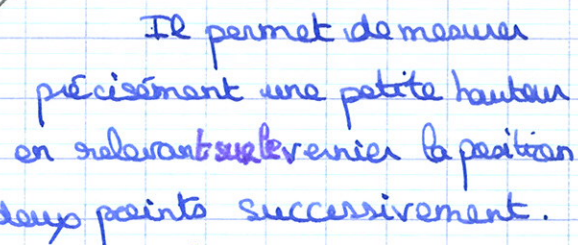 Il permet de mesurer
précisément une petite hauteur
en relevant sur le vernier la position
deux points successivement.